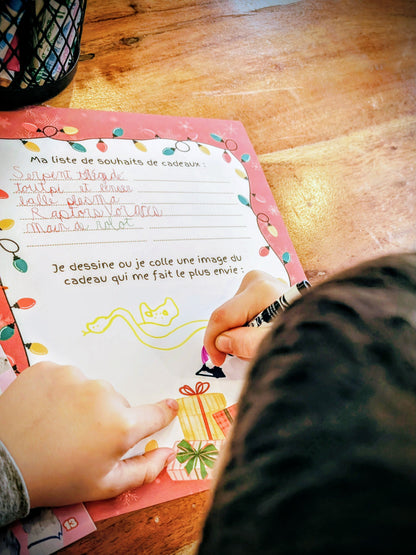 Ma liste de souhaits de cadeaux :
Serpent
toutpi et
balle plasma
Raptors
Main de robot
Je dessine ou je colle une image du
cadeau qui me fait le plus envie :
13